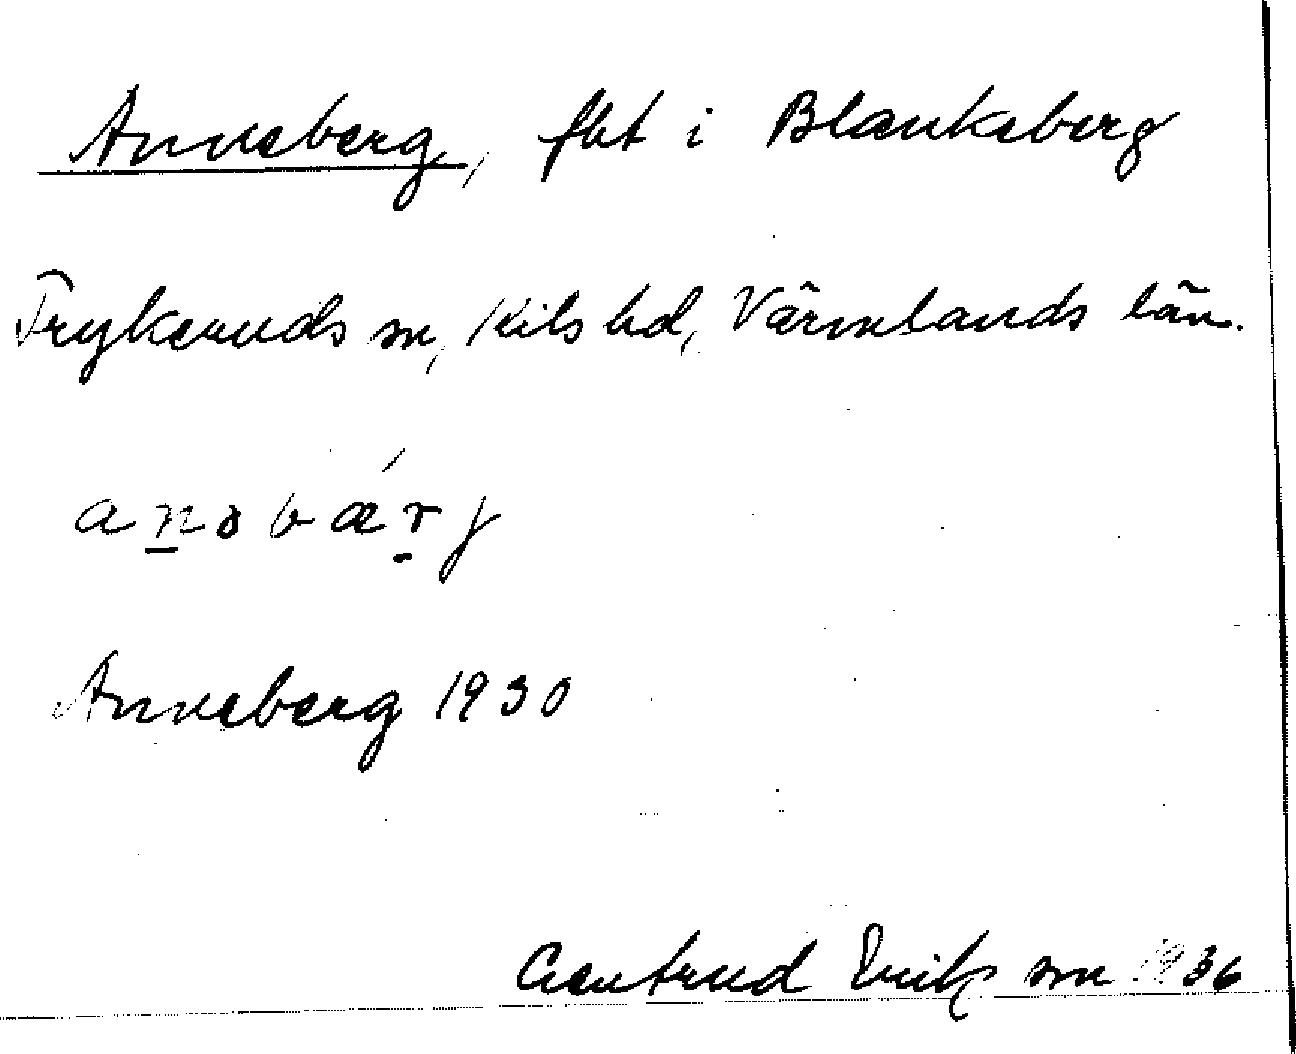 Anneberg, fht i Blankeberg
Frykeruds sn, Kils hd, Värmlands län.
anəbæ´rj
Anneberg 1930
Gertrud Eriksson 1936